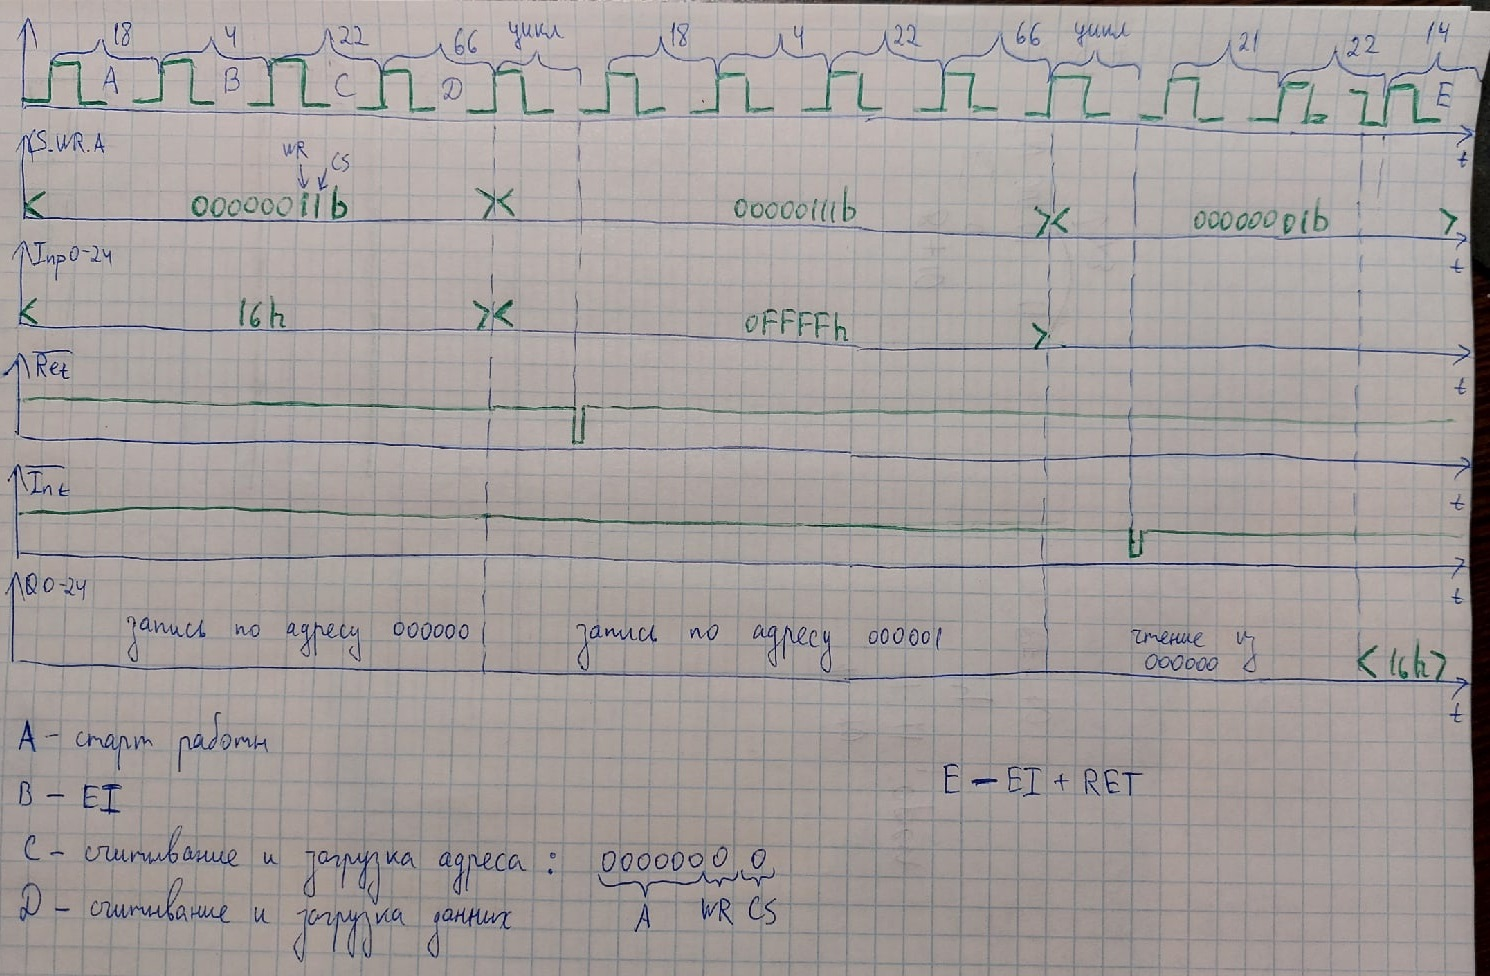 18 4 22 66 цикл 18 4 22 66 цикл 21 22 14
A B C D E
t
CS.WR.A
WR CS
00000011b 00000111b 00000001b
t
Inp0-24
16h 0FFFFh
t
Ret
t
Int
t
Q0-24
запись по адресу 000000 запись по адресу 000001 чтение из
000000 16h
t
A - старт работы
B - EI
E - EI + RET
C - считывание и загрузка адреса : 000000 0 0
A WR CS
D - считывание и загрузка данных